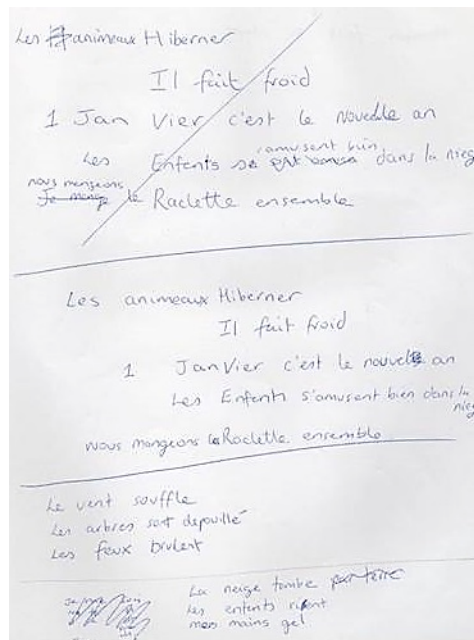 Les animeaux Hiberner
Il fait froid
1 Jan Vier c'est le Nouvelle an
Les Enfants s'amusent bien dans la nieg
nous mangeons le Raclette ensemble
Les animeaux Hiberner
Il fait froid
1 JanVier c'est le nouvel an
Les Enfents s'amusent bien dans la nieg
nous mangeons la Raclette ensemble
Le vent souffle
Les arbres sont depouillé
Les feux brulent
La neige tombe par terre
Les enfents rient
mes mains gel